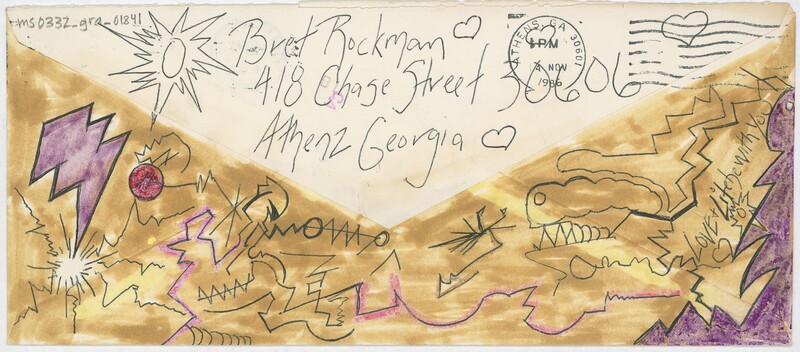 ms0332_gra_01841
Bret Rockman
418 Chase Street 30606
Athenz Georgia
ATHENS, GA 30601
PM
NOV
1986
LOVE + Life be with you